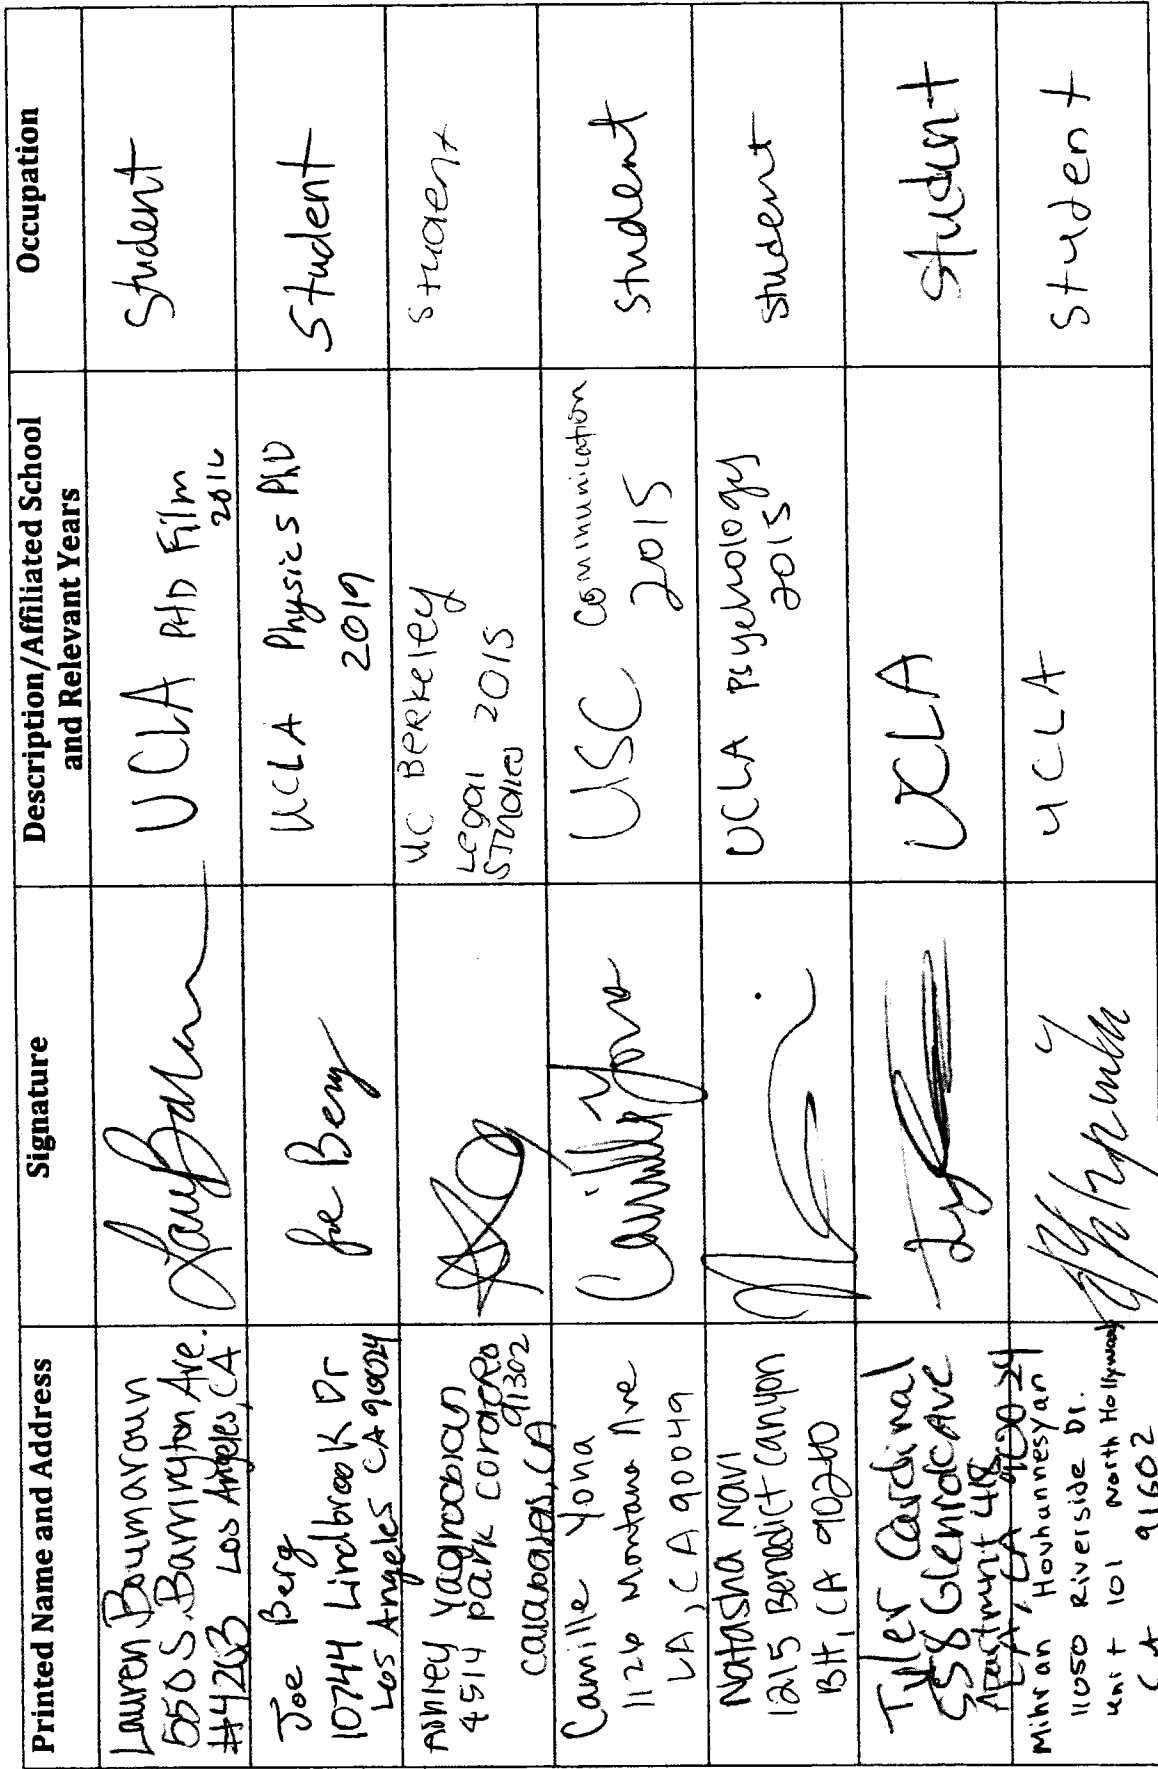 Printed Name and Address
Signature
Description/Affiliated School
and Relevant Years
Occupation
Lauren Boumaroun
550 S. Barrington Ave.
#4203 Los Angeles, CA
UCLA PHD Film
2016
Student
Joe Berg
10744 Lindbrook Dr
Los Angeles CA 90024
Joe Berg
UCLA Physics PhD
2019
Student
Ashley Yaghoobian
4514 park
calabasas, CA 91302
UC Berkeley
Legal
Studies 2015
Student
Camille Yona
1126 Montana Ave
LA, CA 90049
Camille Yona
USC Communication
2015
Student
Natasha Navi
1215 Benedict Canyon
BH, CA 90210
UCLA Psychology
2015
student
Tyler Cardinal
558 Glenrock Ave
Apartment 418
LA, CA 90024
UCLA
Student
Mihran Hovhannesyan
11050 Riverside Dr.
unit 101 North Hollywood
CA 91602
UCLA
student